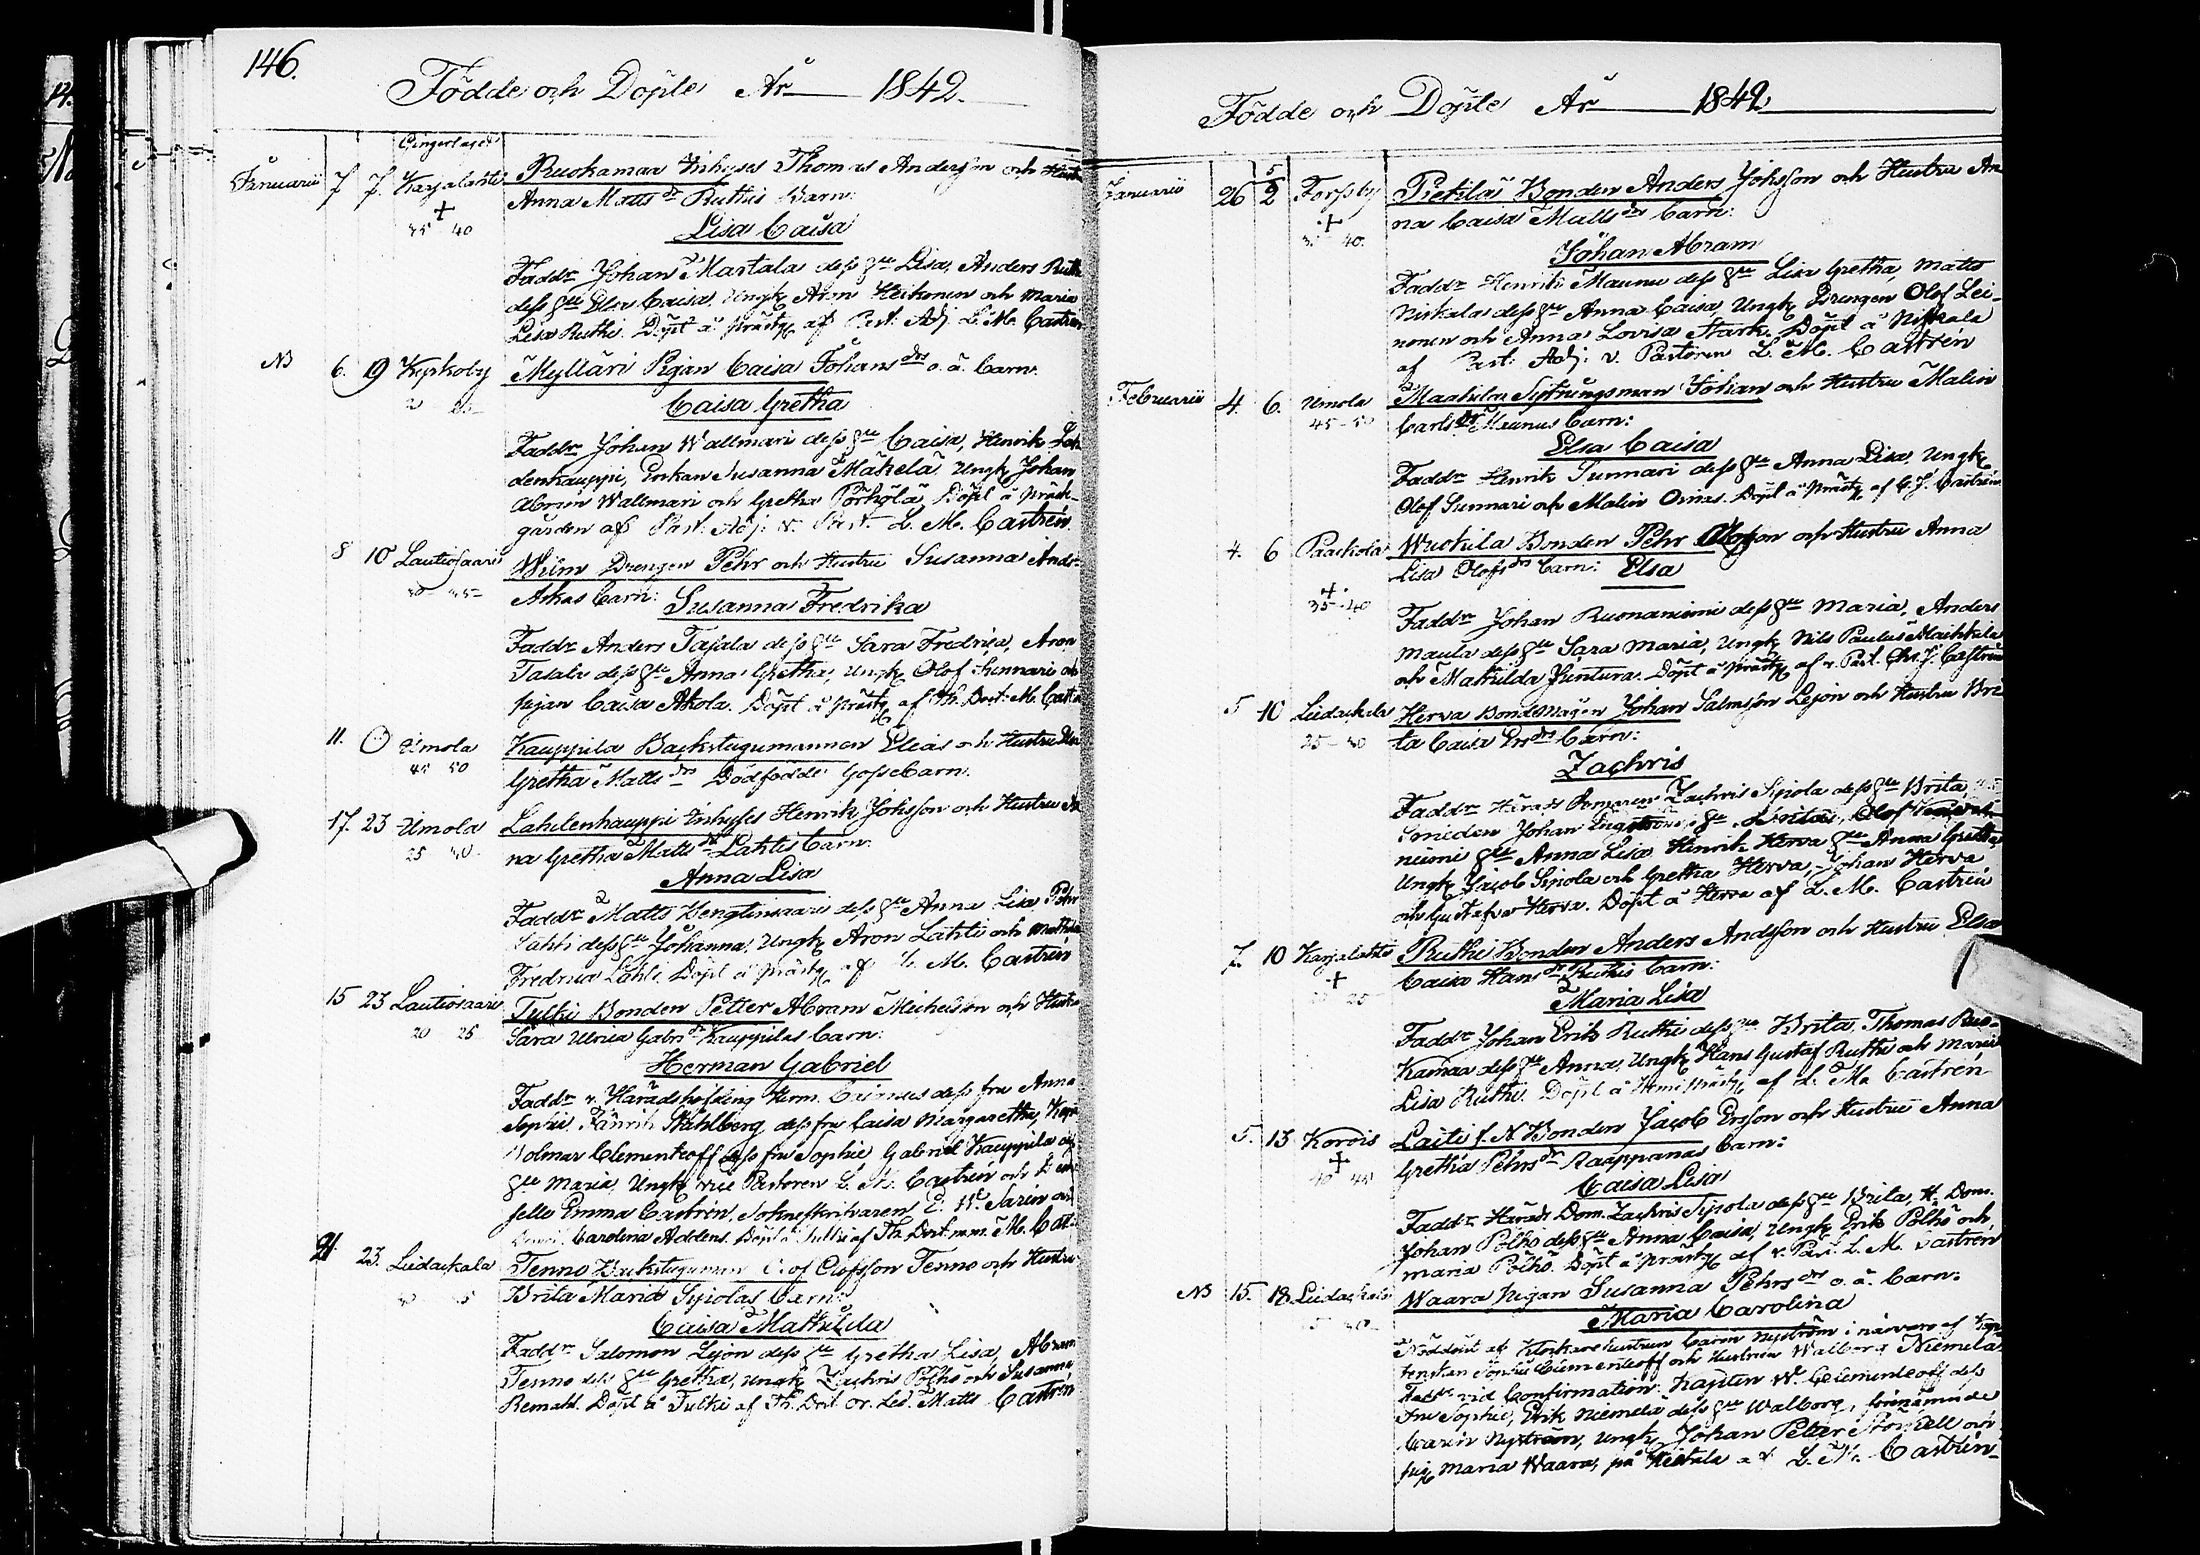 146.
Födde och Döpte År 1842.
Januarii 7 7. Karjalahti Ruokamaa Inhyses Thomas Andersson och Hustru
Anna Matts dr Ruthis Barn:
35 40
Lisa Caisa
Faddr Johan Martala dess hu Lisa, Anders Ruth
dess hu Elsa Caisa, Ungk Aron Heikonen och Maria
Lisa Ruthi. Döpt å prästg af Past. Adj. L. M. Castrén
NB 6. 19 Kyrkoby Mylläri Pigan Caisa Johans drs o. ä. barn.
Caisa Gretha
Faddr Johan Wallmari dess hu Caisa, Henrik Lah
denkauppi, Enkan Susanna Mäkelä Ungk Johan
Abram Wallmari och Gretha Pörhölä, Döpt å präst-
gården af Past. Adj. v. Past. L. M. Castrén
8 10 Lautiosaari Wiim Drengen Pehr och Hustru Susanna Ands
Arkas barn: Susanna Fredrika
Faddr Anders Tasala dess hu Sara Fredrica, Aron
Tasala dess hu Anna Gretha, Ungk Olof Sunnari och
pigan Caisa Akola. Döpt å prästg af Th. Doct. M. Castrén
11. Umola Kauppila Backstugumannen Elias och Hustru
45 50
Gretha Matts drs Dödfödde Gossebarn.
17. 23 Umola Lahdenkauppi Inhyses Henrik Johsson och Hustru An
na Gretha Matts dr Lahtis barn.
Anna Lisa
Faddr Matts Kengtinsaari dess hu Anna Lisa, Pehr
Lahti dess hu Johanna, Ungk Aron Lahti och Mathilda
Fredrica Lahti. Döpt å prästg af L. M. Castrén
15 23 Lautiosaari Tulki Bonden Petter Abram Michelsson och Hustru
20 25 Sara Ulrica Gabr dr Kauppilas barn:
Herman Gabriel
Faddr v. Häradshöfding Herm. dess fru Anna
Sophie Fänrik Ståhlberg dess fru Caisa Margaretha, Kapit
Volmar Clementeoff dess fru Sophie Gabriel Kauppila dess
hu Maria, Ungk vice Pastoren L. M. Castrén och Dem
selle Emma Castrén, Sokneskrifvaren E. W. Sarin och
Carolina Addens. Döpt å Tulki af Th. Doct. m.m. M. Cast
21 23. Liedakkala Tenno Backstuguman Olof Olofsson Tenno och Hustru
Brita Maria Sipolas barn:
Caisa Mathilda
Faddr Salomon Lejon dess hu Gretha Lisa, Abram
Tenno dess hu Gretha, Ungk Zachris Pölhö och Susanna
Remahl. Döpt å Tulki af Th. Doct. Matts Castrén
Födde och Döpte År 1842
Januarii 26 5/2 Forssby Piekilä Bonden Anders Johsson och Hustru An
na Caisa Matts drs barn:
Johan Abram
Faddr Henrik Maunu dess hu Lisa Gretha, Matts
Niskala dess hu Anna Caisa, Ungk Drengen Olof Lei-
nonen och Anna Lovisa Stark. Döpt å Niskala
af Past. Adj. v. Pastoren L. M. Castrén
Februarii 4. 6. Umola Maakilas Sytningsman Johan och Hustru Malin
45-50 Carls dr Maunus barn:
Elsa Caisa
Faddr Henrik Sunnari dess hu Anna Lisa, Ungk
Olof Sunnari och Malin Oinas. Döpt å prästg af C. J. Castrén
4. 6 Paackola Wuokila Bonden Pehr Olofsson och Hustru Anna
Lisa Olofs drs barn: Elsa
35-40
Faddr Johan Ruonaniemi dess hu Maria, Anders
Maula dess hu Sara Maria, Ungk Nils Paulus Maikkila
och Mathilda Juntura. Döpt å prästg af v. Past. Chr. J. Castrén
5 10 Liedakkala Herva Bondemågen Johan Salmsson Lejon och Hustru Bri
ta Caisa Ers drs barn:
Zachris
Faddr Härads Domaren Zachris Sipola dess hu Brita,
Smeden Johan Engström, hu Brita, Olof
niemi hu Anna Lisa, Henrik Herva hu Anna Gretha
Ungk Jacob Sipola och Gretha Herva, Johan Herva
och Gustafva Herva. Döpt å Herva af L. M. Castrén
7. 10 Karjalahti Ruthi Bonden Anders Andsson och Hustru Elsa
Caisa Hans dr Ruthis barn:
Maria Lisa
Faddr Johan Erik Ruthi dess hu Brita, Thomas Ruo-
kamaa dess hu Anna, Ungk Hans Gustaf Ruthi och Maria
Lisa Ruthi. Döpt å Kemi prästg af L. M. Castrén
5. 13 Korois Laiti f. N Bonden Jacob Ersson och Hustru Anna
Gretha Pehrs dr Raappanas barn:
Caisa Lisa
Faddr Härads Dom. Zachris Sipola dess hu Brita, H. Dom.
Johan Pölhö dess hu Anna Caisa, Ungk Erik Pölhö och
Maria Pölhö. Döpt å prästg af v. Past. L. M. Castrén
NB 15. 18. Liedakkala Waara Pigan Susanna Pehrs drs o. ä. barn:
Maria Carolina
Nöddöpt af Klockarehustrun Carin Nyström i närvaro af Kap-
tenskan Sophie Clementeoff och Hustrun Walborg Niemelä
Faddr vid Confirmation: Kapten W. Clementeoff dess
Fru Sophie, Erik Niemelä dess hu Walborg, förenämnde
Carin Nyström, Ungk Johan Petter och
pig Maria Waara, på af L. M. Castrén